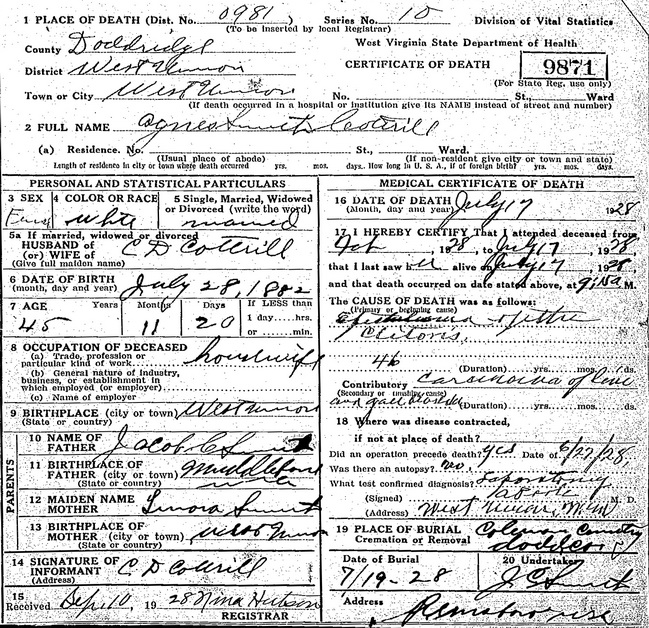 1 PLACE OF DEATH (Dist. No. 0981 ) Series No. 10 Division of Vital Statistics
(To be inserted by local Registrar)
County Doddridge West Virginia State Department of Health
District West Union CERTIFICATE OF DEATH 9871
(For State Reg. use only)
Town or City West Union No. St., Ward
(If death occurred in a hospital or institution give its NAME instead of street and number)
2 FULL NAME Agnes Smith Cottrill
(a) Residence. No. St., Ward.
(Usual place of abode) (If non-resident give city or town and state)
Length of residence in city or town where death occurred yrs. mos. days. How long in U. S. A., if of foreign birth? yrs. mos. days.
PERSONAL AND STATISTICAL PARTICULARS
3 SEX 4 COLOR OR RACE 5 Single, Married, Widowed
or Divorced (write the word)
white married
5a If married, widowed or divorced
HUSBAND of
(or) WIFE of C D Cottrill
(Give full maiden name)
6 DATE OF BIRTH July 28, 1882
(month, day and year)
7 AGE Years Months Days If LESS than
1 day....hrs.
or ........min.
45 11 20
8 OCCUPATION OF DECEASED
(a) Trade, profession or
particular kind of work housewife
(b) General nature of Industry,
business, or establishment in
which employed (or employer)
(c) Name of employer
9 BIRTHPLACE (city or town) West Union
(State or country)
PARENTS
10 NAME OF
FATHER Jacob C Smith
11 BIRTHPLACE OF
FATHER (city or town)
(State or country)
12 MAIDEN NAME
MOTHER Smith
13 BIRTHPLACE OF
MOTHER (city or town) West Union
(State or country)
14 SIGNATURE OF
INFORMANT C D Cottrill
(Address)
15
Received Sep. 10, 1928 Nina Hutson
REGISTRAR
MEDICAL CERTIFICATE OF DEATH
16 DATE OF DEATH July 17 1928
(Month, day and year)
17 I HEREBY CERTIFY That I attended deceased from
Feb , 1928, to July 17, 1928,
that I last saw alive on July 17, 1928,
and that death occurred on date stated above, at M.
The CAUSE OF DEATH was as follows:
(Primary or beginning cause)
Epithelioma of the
Clitoris.
46 (Duration) yrs. mos. ds.
Contributory Carcinoma of liver
(Secondary or immediate cause)
and gall bladder (Duration) yrs. mos. ds.
18 Where was disease contracted,
if not at place of death?
Did an operation precede death? yes Date of 6/27/28
Was there an autopsy? no.
What test confirmed diagnosis? Laboratory
(Signed) M. D.
(Address) West Union, W.Va
19 PLACE OF BURIAL Coleman Cemetery
Cremation or Removal Dodd Co
Date of Burial 20 Undertaker
7/19-28 J C Smith
Address